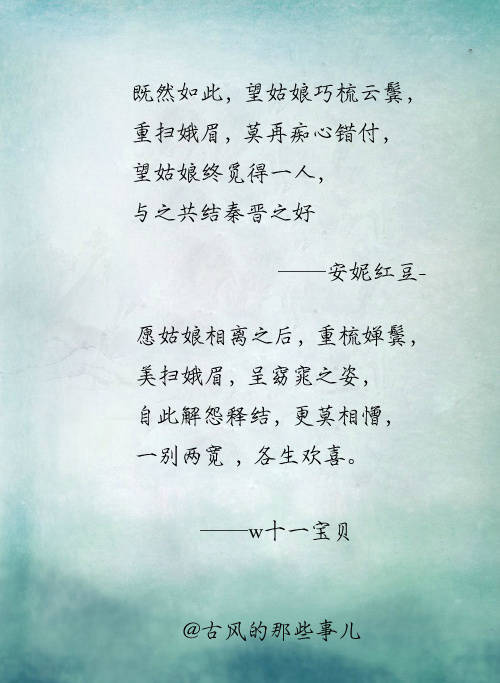 既然如此，望姑娘巧梳云鬓，
重扫娥眉，莫再痴心错付，
望姑娘终觅得一人，
与之共结秦晋之好
——安妮红豆-
愿姑娘相离之后，重梳婵鬓，
美扫娥眉，呈窈窕之姿，
自此解怨释结，更莫相憎，
一别两宽 ，各生欢喜。
——w十一宝贝
@古风的那些事儿